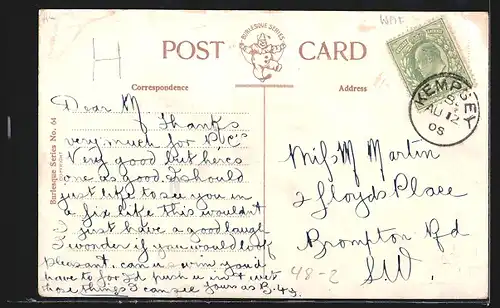 H
WAF
BURLESQUE SERIES
POST CARD
Correspondence
Address
Burlesque Series No. 64
Dear M.
Thanks
very much for P.P.C's
Very good but heres
one as good. I should
just like to see you in
a fix like this wouldnt
I just have a good laugh
I wonder if you would look
pleasant, can u swim you'd
have to for I'd push u in & wet
those things I can see yours as B.4.
KEMPSEY
AU 12
08
Miss M Martin
2 Lloyds Place
Brompton Rd
S.W.
48-2